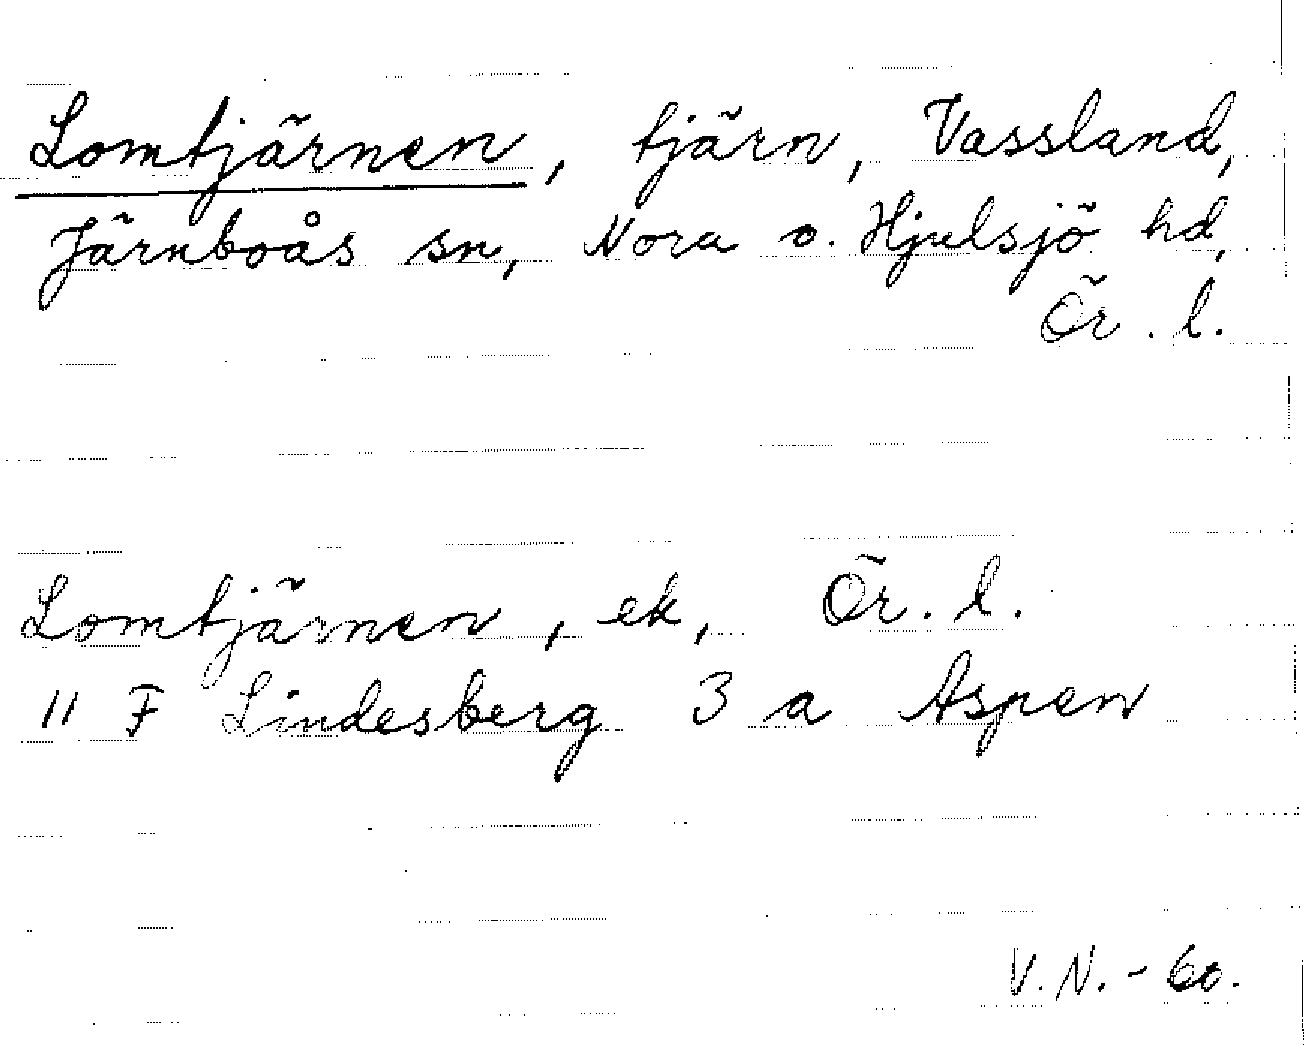 Lomtjärnen, tjärn, Vassland,
Järnboås sn, Nora o. Hjulsjö hd,
Ör. l.
Lomtjärnen, ek, Ör. l.
11 F Lindesberg 3 a Aspen
V. N. - 60.